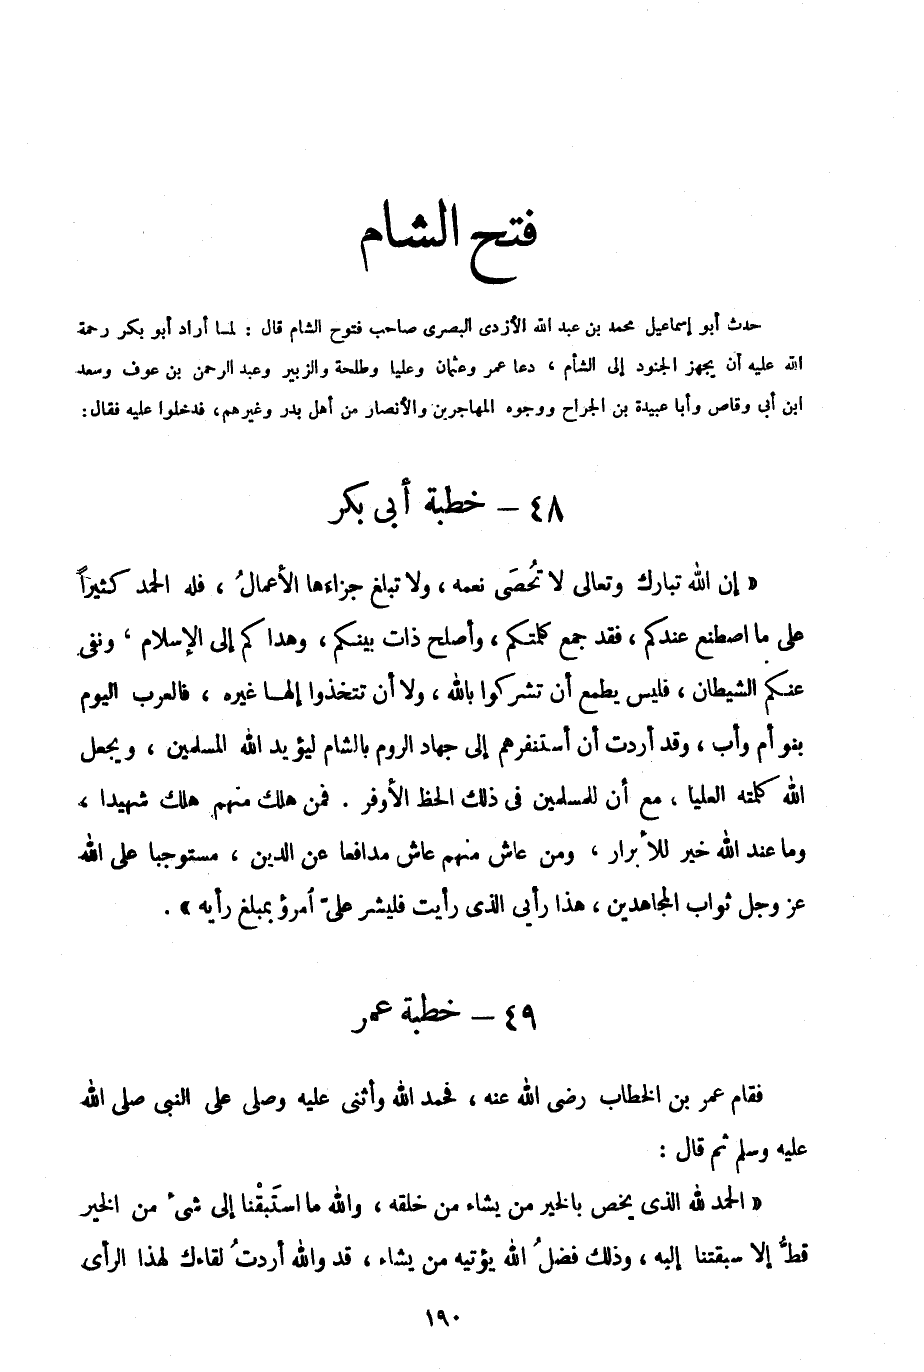 فتح الشام
حدث أبو إسماعيل محمد بن عبد الله الأزدى البصرى صاحب فتوح الشام قال : لما أراد أبو بكر رحمة
الله عليه أن يجهز الجنود إلى الشأم ، دعا عمر وعثمان وعليا وطلحة والزبير وعبد الرحمن بن عوف وسعد
ابن أبى وقاص وأبا عبيدة بن الجراح ووجوه المهاجرين والأنصار من أهل بدر وغيرهم، فدخلوا عليه فقال:
٤٨ – خطبة أبى بكر
« إن الله تبارك وتعالى لا تُحصَى نعمه ، ولا تبلغ جزاءها الأعمالُ ، فله الحمد كثيراً
على ما اصطنع عندكم ، فقد جمع كلمتكم ، وأصلح ذات بينكم ، وهداكم إلى الإسلام ، ونفى
عنكم الشيطان ، فليس يطمع أن تشركوا بالله ، ولا أن تتخذوا إلها غيره ، فالعرب اليوم
بنو أم وأب ، وقد أردت أن أستنفرهم إلى جهاد الروم بالشام ليؤيد الله المسلمين ، ويجعل
الله كلمته العليا ، مع أن للمسلمين فى ذلك الحظ الأوفر . فمن هلك منهم هلك شهيدا ،
وما عند الله خير للأبرار ، ومن عاش منهم عاش مدافعا عن الدين ، مستوجبا على الله
عز وجل ثواب المجاهدين ، هذا رأيى الذى رأيت فليشر علىّ امرؤ بمبلغ رأيه » .
٤٩ – خطبة عمر
فقام عمر بن الخطاب رضى الله عنه ، فحمد الله وأثنى عليه وصلى على النبى صلى الله
عليه وسلم ثم قال :
« الحمد لله الذى يخص بالخير من يشاء من خلقه ، والله ما استَبقْنا إلى شىء من الخير
قطُّ إلا سبقتنا إليه ، وذلك فضلُ الله يؤتيه من يشاء ، قد والله أردتُ لقاءك لهذا الرأى
١٩٠